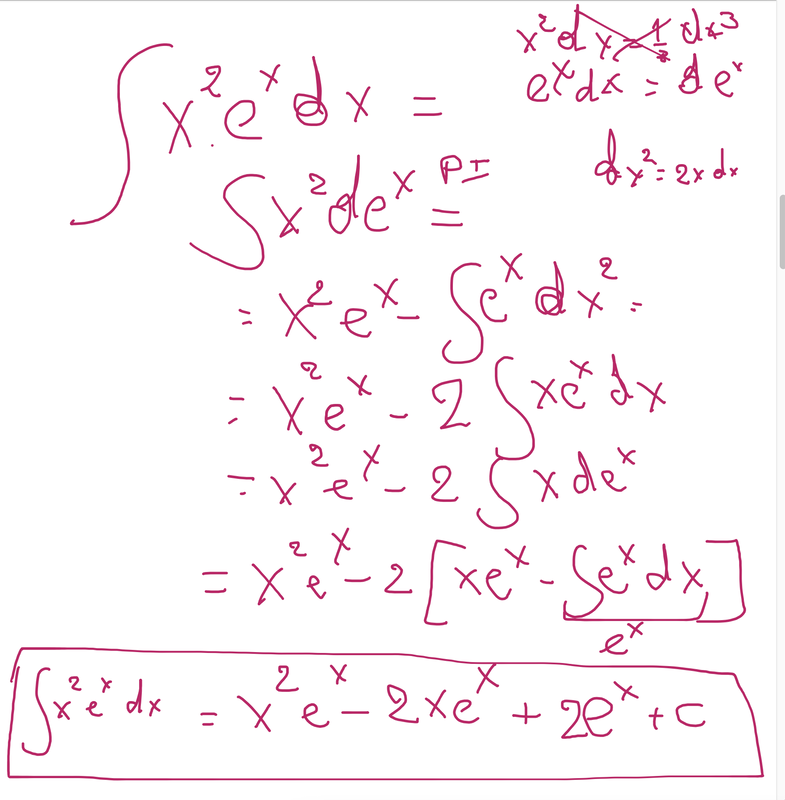 x²dx = 1/3 dx³
eˣdx = deˣ
dx² = 2x dx
∫x²eˣdx =
∫x²deˣ PI =
= x²eˣ - ∫eˣdx² =
= x²eˣ - 2∫xeˣdx
= x²eˣ - 2∫x deˣ
= x²eˣ - 2[xeˣ - ∫eˣdx]
eˣ
∫x²eˣdx = x²eˣ - 2xeˣ + 2eˣ + c